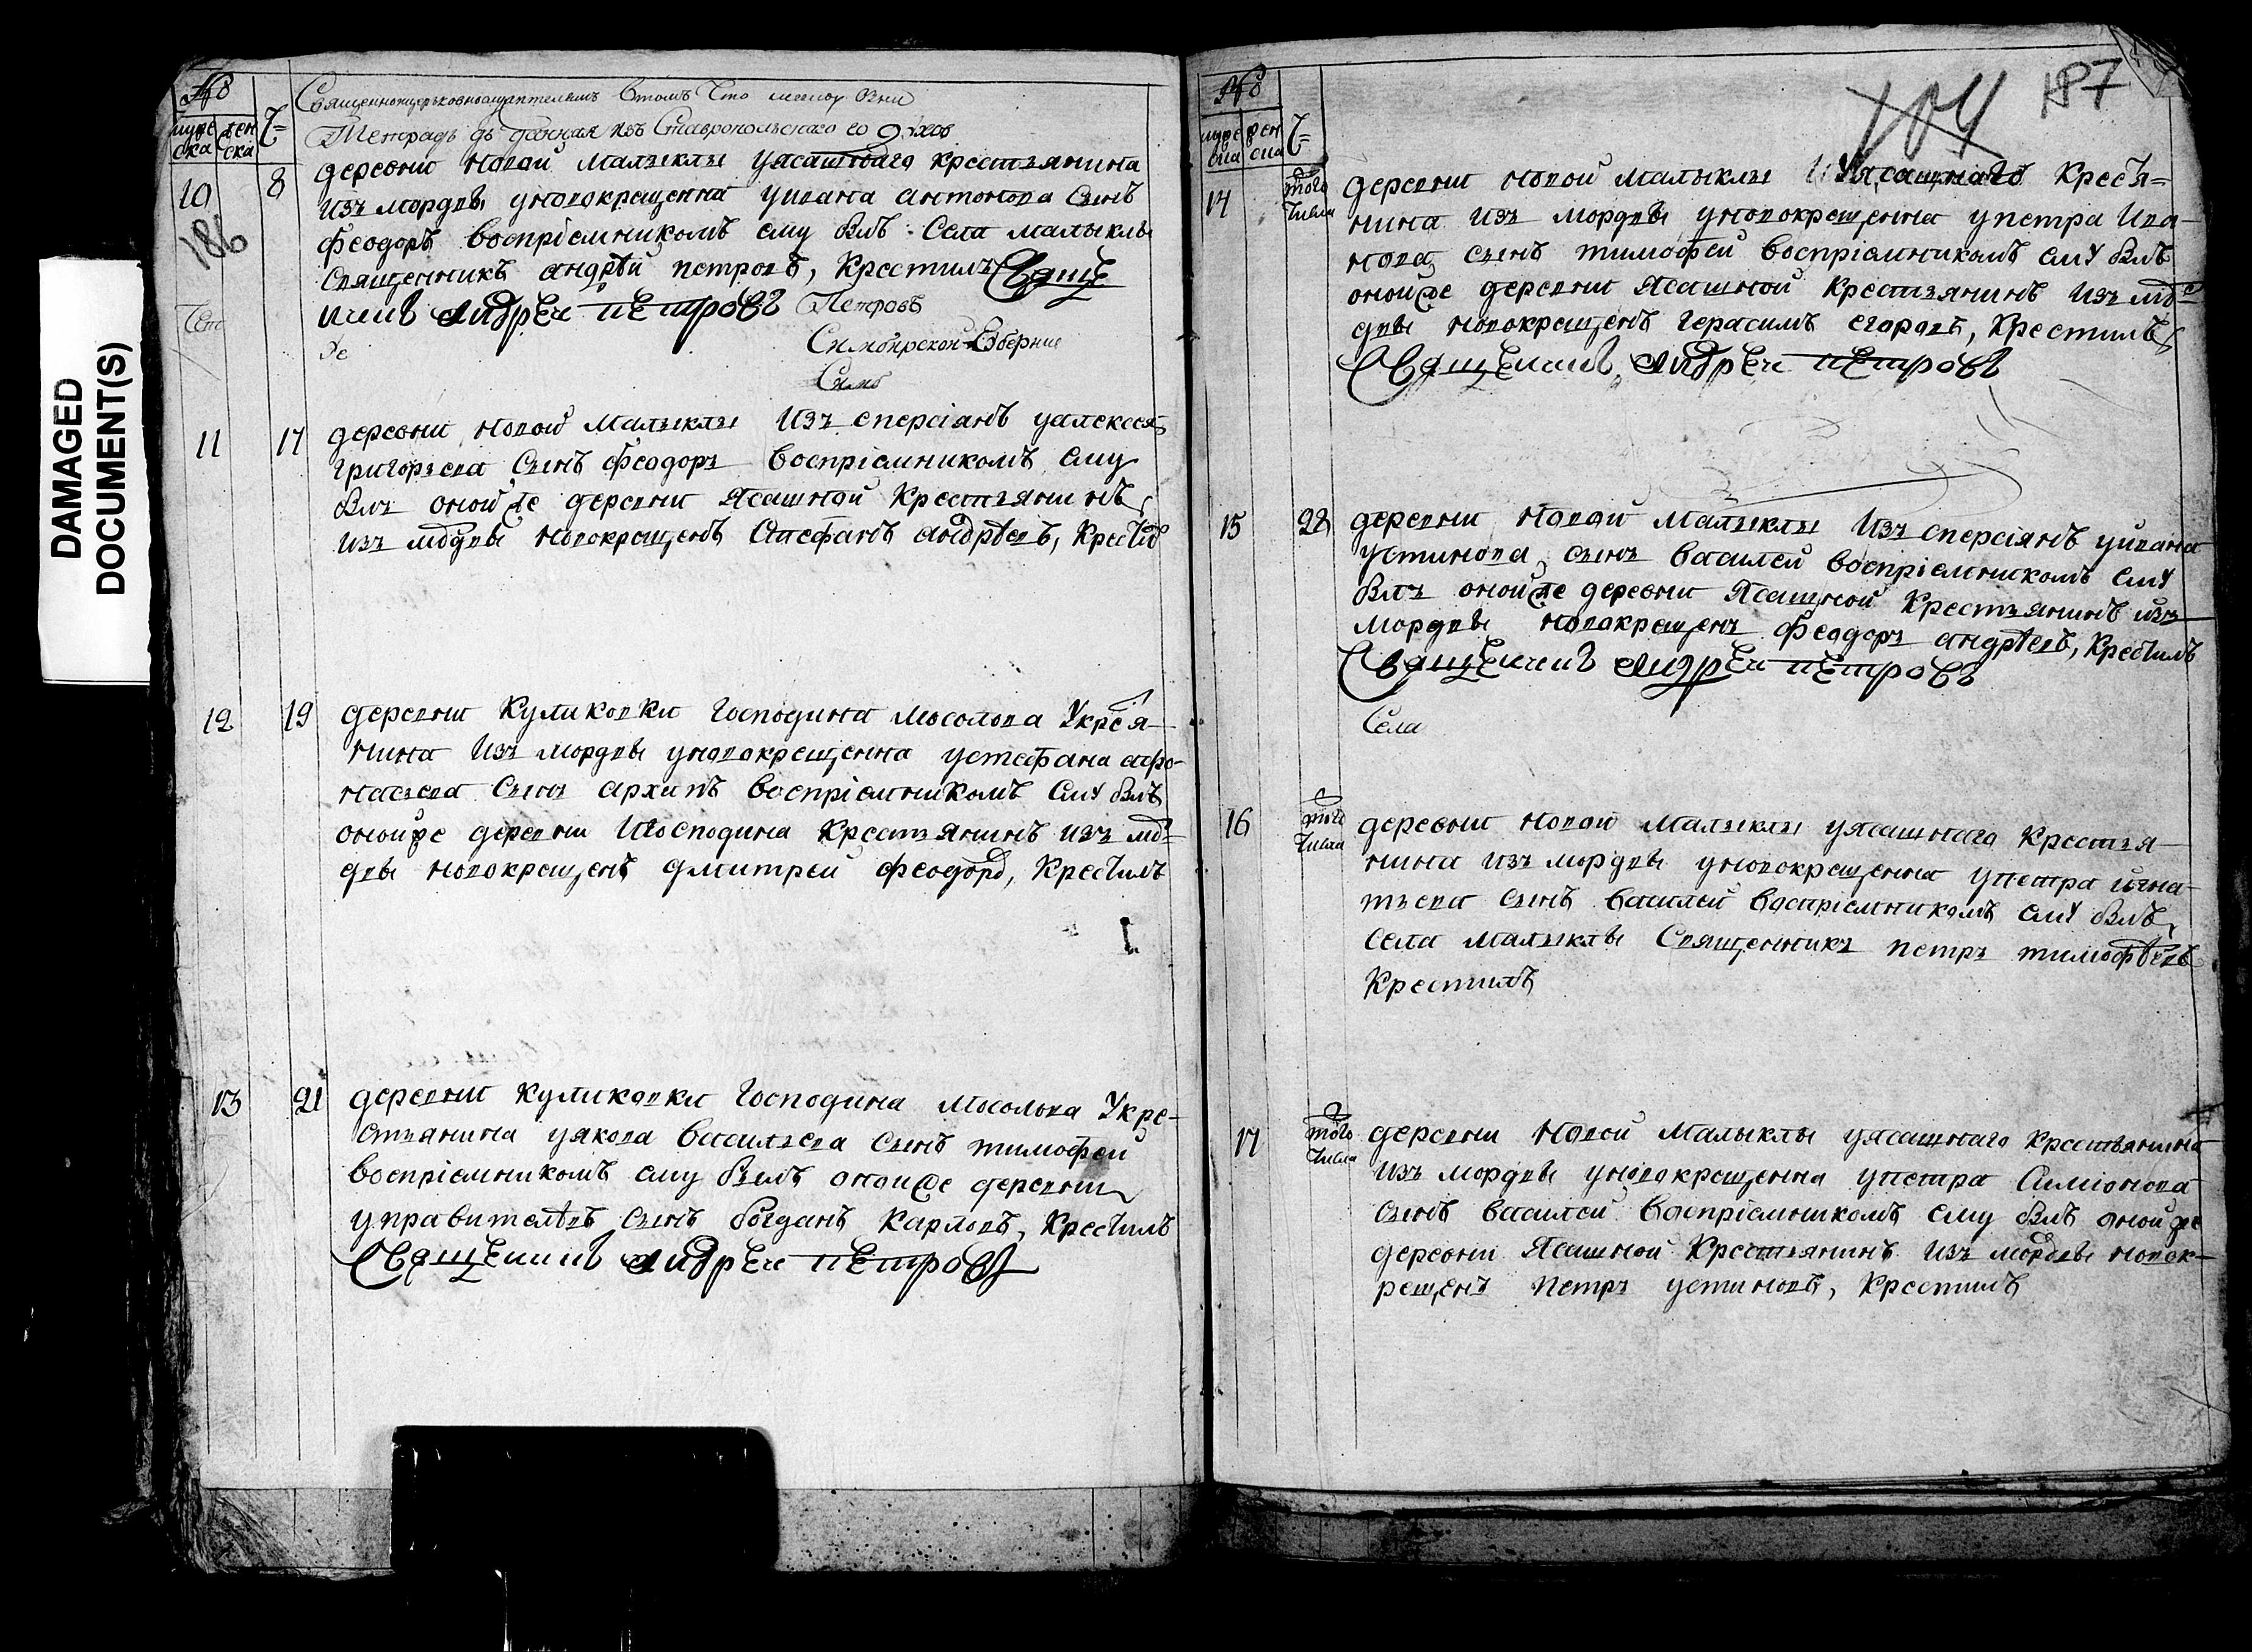 DAMAGED
DOCUMENT(S)
№
муже
ска
жен
ска
Ч=
Священноцерковнослужителямъ Втомъ Что
Тетрадь данная изъ Ставропольскаго
10
8
деревни новой малыклы уясашнаго крестьянина
изъ мордвы уновокрещенна уивана антонова сынъ
феодоръ воспріемникомъ ему былъ Села малыклы
Священникъ андрѣй петровъ, Крестилъ Свяще
никъ андреи петровъ Петровъ
186
же
Симбирской Губерніи
Симб
11
17
деревни новой малыклы изъ сперсіанъ уалексея
григорьева сынъ феодоръ воспріемникомъ ему
былъ оной же деревни Ясашной Крестьянинъ
изъ мордвы новокрещенъ Стефанъ андрѣевъ, Крестил
12
19
деревни куликовки господина мосолова Укрестья-
нина изъ мордвы уновокрещенна устефана афо-
насьева сынъ архипъ воспріемникомъ ему былъ
оной же деревни Господина крестьянинъ изъ мор-
двы новокрещенъ дмитреи феодоров, Крестилъ
13
21
деревни куликовки господина мосолова Укре-
стьянина уякова васильева сынъ тимофей
воспріемникомъ ему былъ оной же деревни
управителѣвъ сынъ богданъ карловъ, крестилъ
Священникъ андреи петровъ
187
104
№
муже
ска
жен
ска
Ч=
14
того
числа
деревни новой малыклы Уясашнаго Кресья=
нина изъ мордвы уновокрещенна упетра ива-
нова сынъ тимофей воспріемникомъ ему былъ
оной же деревни Ясашной Крестьянинъ изъ мор
двы новокрещенъ герасимъ егоровъ, Крестилъ
Священникъ андреи петровъ
15
22
деревни новой малыклы изъ сперсіянъ уивана
устинова сынъ василей воспріемникомъ ему
былъ оной же деревни Ясашной Крестьянинъ изъ
мордвы новокрещенъ феодоръ андрѣевъ, Крестилъ
Священникъ андреи петровъ
Села
16
того
числа
деревни новой малыклы уясашнаго крестья-
нина изъ мордвы уновокрещенна упетра игна-
тьева сынъ василей воспріемникомъ ему былъ
Села малыклы Священникъ петръ тимофѣевъ
Крестилъ
17
того
числа
деревни новой малыклы уясашнаго крестьянина
изъ мордвы уновокрещенна упетра Симіонова
сынъ василей воспріемникомъ ему былъ оной же
деревни Ясашной Крестьянинъ изъ мордвы новок-
рещенъ петръ устиновъ, Крестилъ